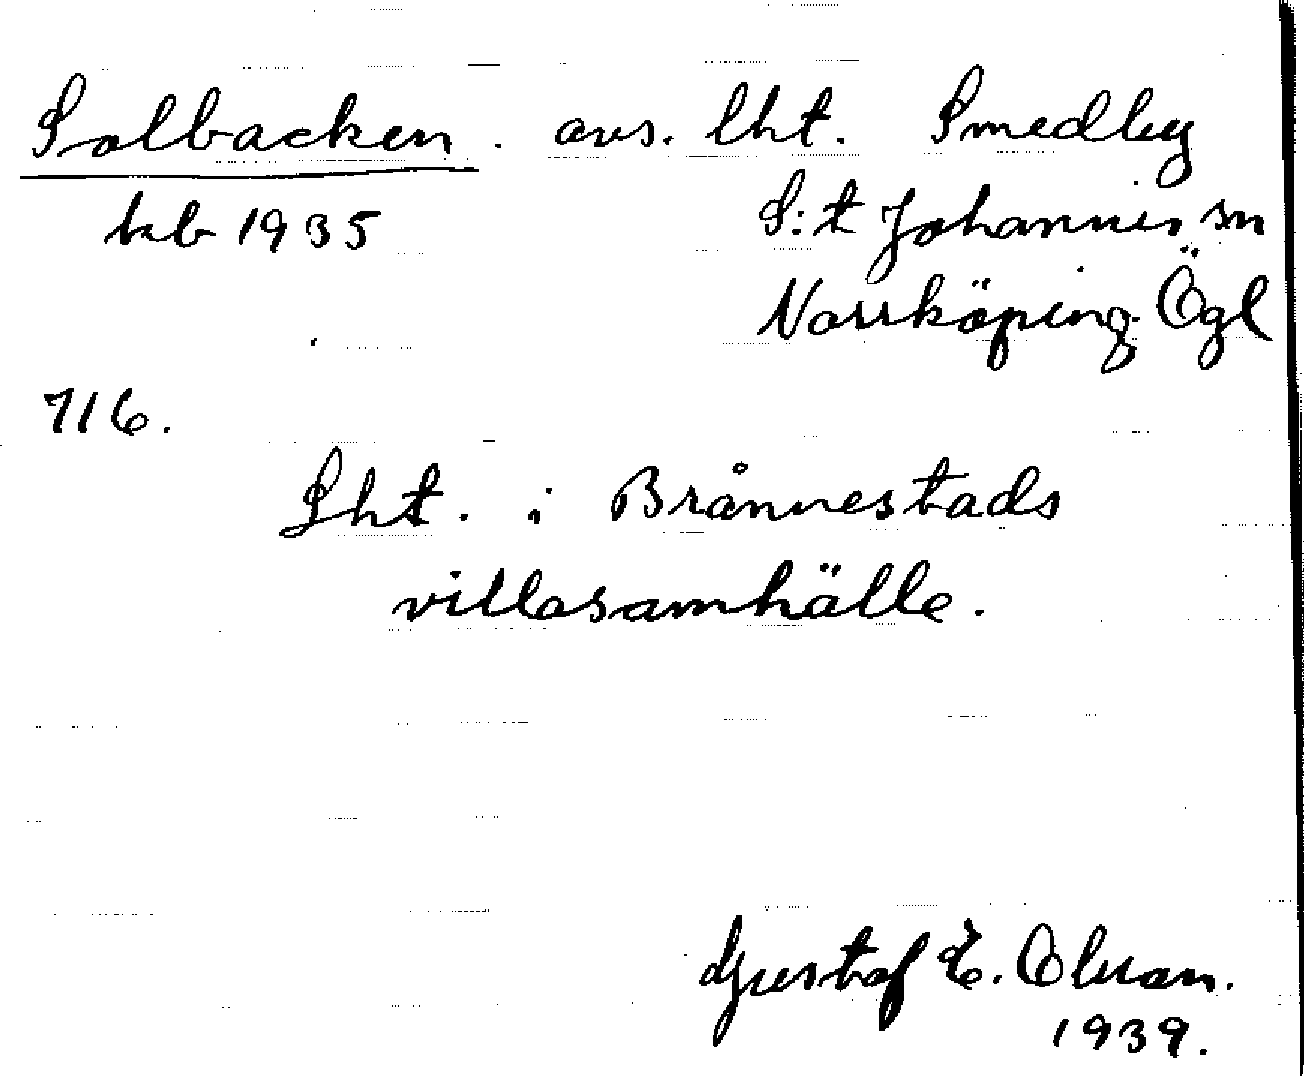 Solbacken. avs. lht. Smedby
kb 1935 S:t Johannis sn
Norrköping Ögl
716.
Lht. i Brånnestads
villasamhälle.
Gustaf E.
1939.